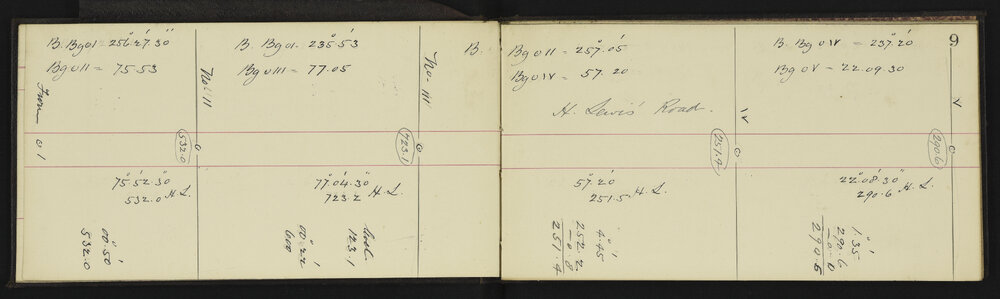 B. Bg 0I = 256°.27'.30"
Bg 0II = 75.53
From 01
No. II
532.0
75°.52'.30"
532.0 H.L.
00°.50'
532.0
B. Bg 0I. 235°.53'
Bg 0III = 77.05
No. III
723.1
77°.04'.30"
723.2 H.L.
00°.22'
600
123.1
B.
Bg 0II = 257°.05'
Bg 0IV = 57.20
H. Lewis' Road.
IV
251.4
57°.20'
251.5 H.L.
4°.45'
252.2
-0.8
251.4
B. Bg 0IV = 237°.20'
Bg 0V = 22.09.30
9
V
290.6
22°.08'.30"
290.6 H.L.
1°.35'
290.6
-0.0
290.6